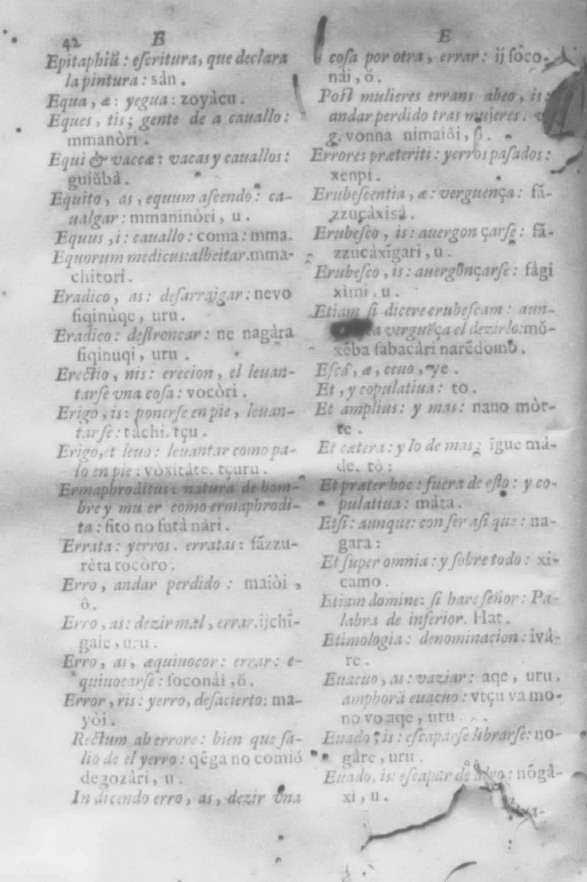 42 E
Epitaphiũ: escritura, que declara
la pintura: sàn.
Equa, æ: yegua: zoyàcu.
Eques, tis; gente de a cauallo:
mmanòri.
Equi & vaccæ: vacas y cauallos:
guiũbâ.
Equito, as, equum ascendo: ca-
ualgar: mmaninòri, u.
Equus, i: cauallo: coma: mma.
Equorum medicus: albeitar. mma-
chitori.
Eradico, as: desarraigar: nevo
siqinùqe, uru.
Eradico: destroncar: ne nagàra
siqinuqi, uru.
Erectio, nis: erecion, el leuan-
tarse vna cosa: vocòri.
Erigo, is: ponerse en pie, leuan-
tarse: tàchi. tçu.
Erigo, et leuo: leuantar como pa-
lo en pie: vòxitàte. tçuru.
Ermaphroditus: natura de hom-
bre y mu er como ermaphrodi-
ta: fito no futâ nàri.
Errata: yerros. erratas: fãzzu-
rèta tocòro.
Erro, andar perdido: maiòi,
ô.
Erro, as: dezir mal, errar. ijchĩ-
gaie, uru.
Erro, as, æquiuocor: errar: e-
quiuocarse: soconài, ŏ.
Error, ris: yerro, desacierto: ma-
yòi.
Rectum ab errore: bien que sa-
lio de el yerro: qẽga no comiô
degozàri, u.
In dicendo erro, as, dezir vna
E
cosa por otra, errar: ij soco-
nái, ŏ.
Post mulieres errans abeo, is:
andar perdido tras mujeres.
g. vonna nimaiôi,
Errores præteriti: yerros pasados:
xenpi.
Erubescentia, æ: verguença: fã-
zzucàxisà.
Erubesco, is: auergonçarse: fã-
zzucàxĩgari, u.
Erubesco, is: auergõnçarse: fãgi
ximi, u.
Etiam si dicere erubescam: aun-
verguẽça el dezirlo: mõ-
xèba fabacàri narẽdomò.
Esca, æ,
Et, y copulatiua: to.
Et amplius: y mas: nano mòt-
te.
Et cætera: y lo de mas: ĩgue mà-
de. tò:
Et præter hoc: fuera de esto: y co-
pulatiua: màta.
Etsi: aunque: con ser asi que: na-
gara:
Et super omnia: y sobre todo: xi-
camo.
Etiam domine: si hare señor: Pa-
labra de inferior. Hat.
Etimologia: denominacion: ivà-
re.
Euacuo, as: vaziar: aqe, uru.
amphorà euacuo: vtçu va mo-
no vo aqe, uru.
Euado, is: escaparse librarse: no-
gàre, uru.
Euado, is: escapar de algo: nõgâ-
xi, u.